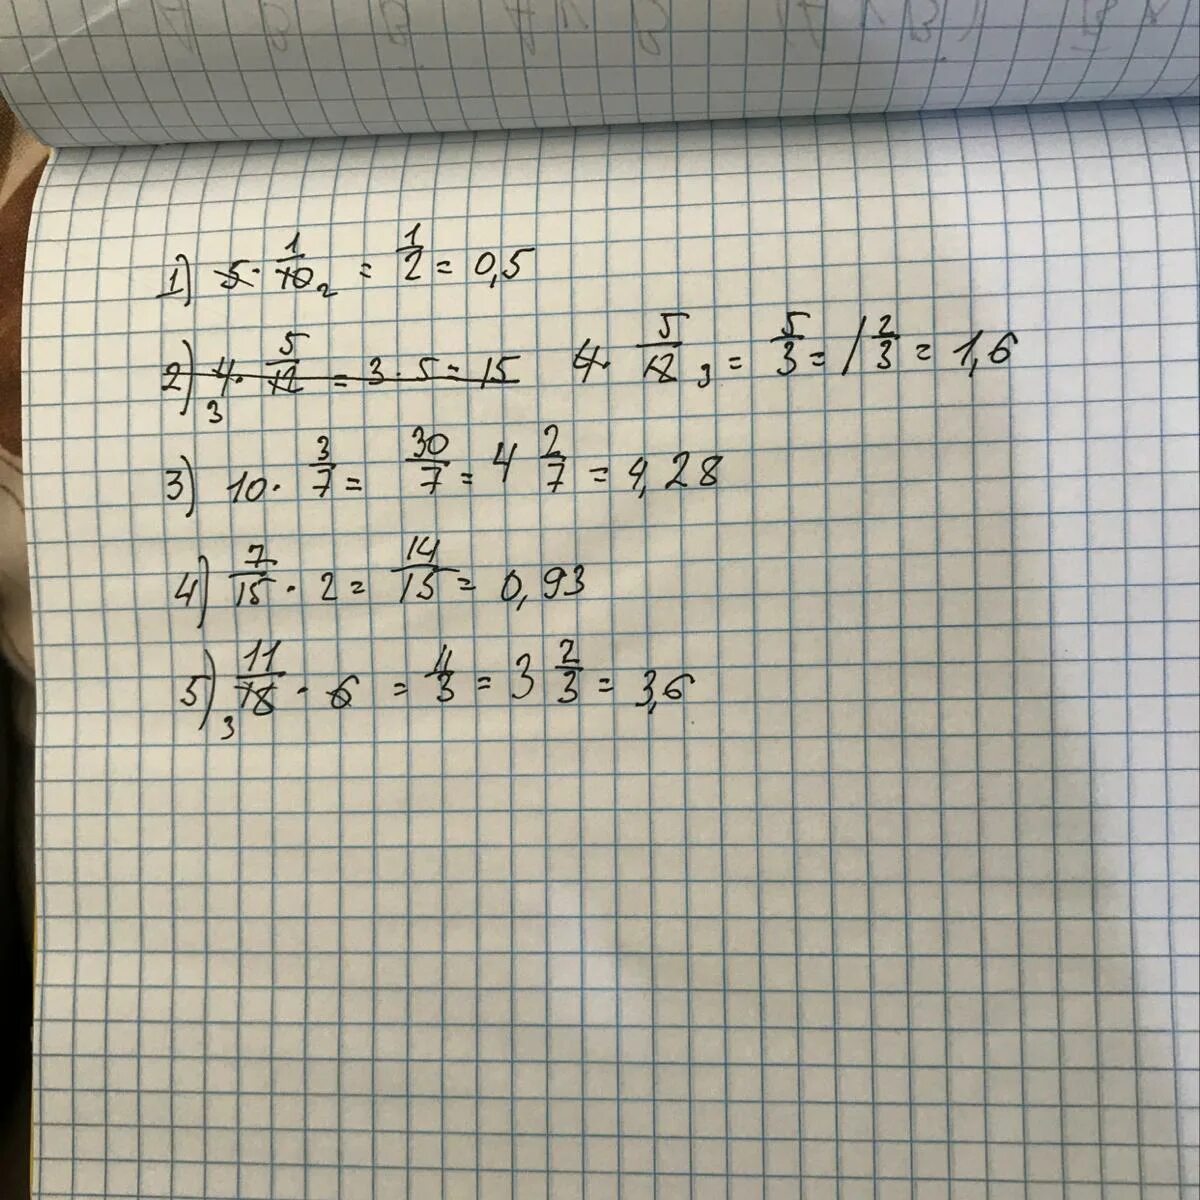 1) 5 · 1/10 2 = 1/2 = 0,5
2) 4 · 5/12 3 = 3 · 5 = 15 4 · 5/12 3 = 5/3 = 1 2/3 = 1,6
3) 10 · 3/7 = 30/7 = 4 2/7 = 4,28
4) 7/15 · 2 = 14/15 = 0,93
5) 11/18 3 · 6 = 11/3 = 3 2/3 = 3,6